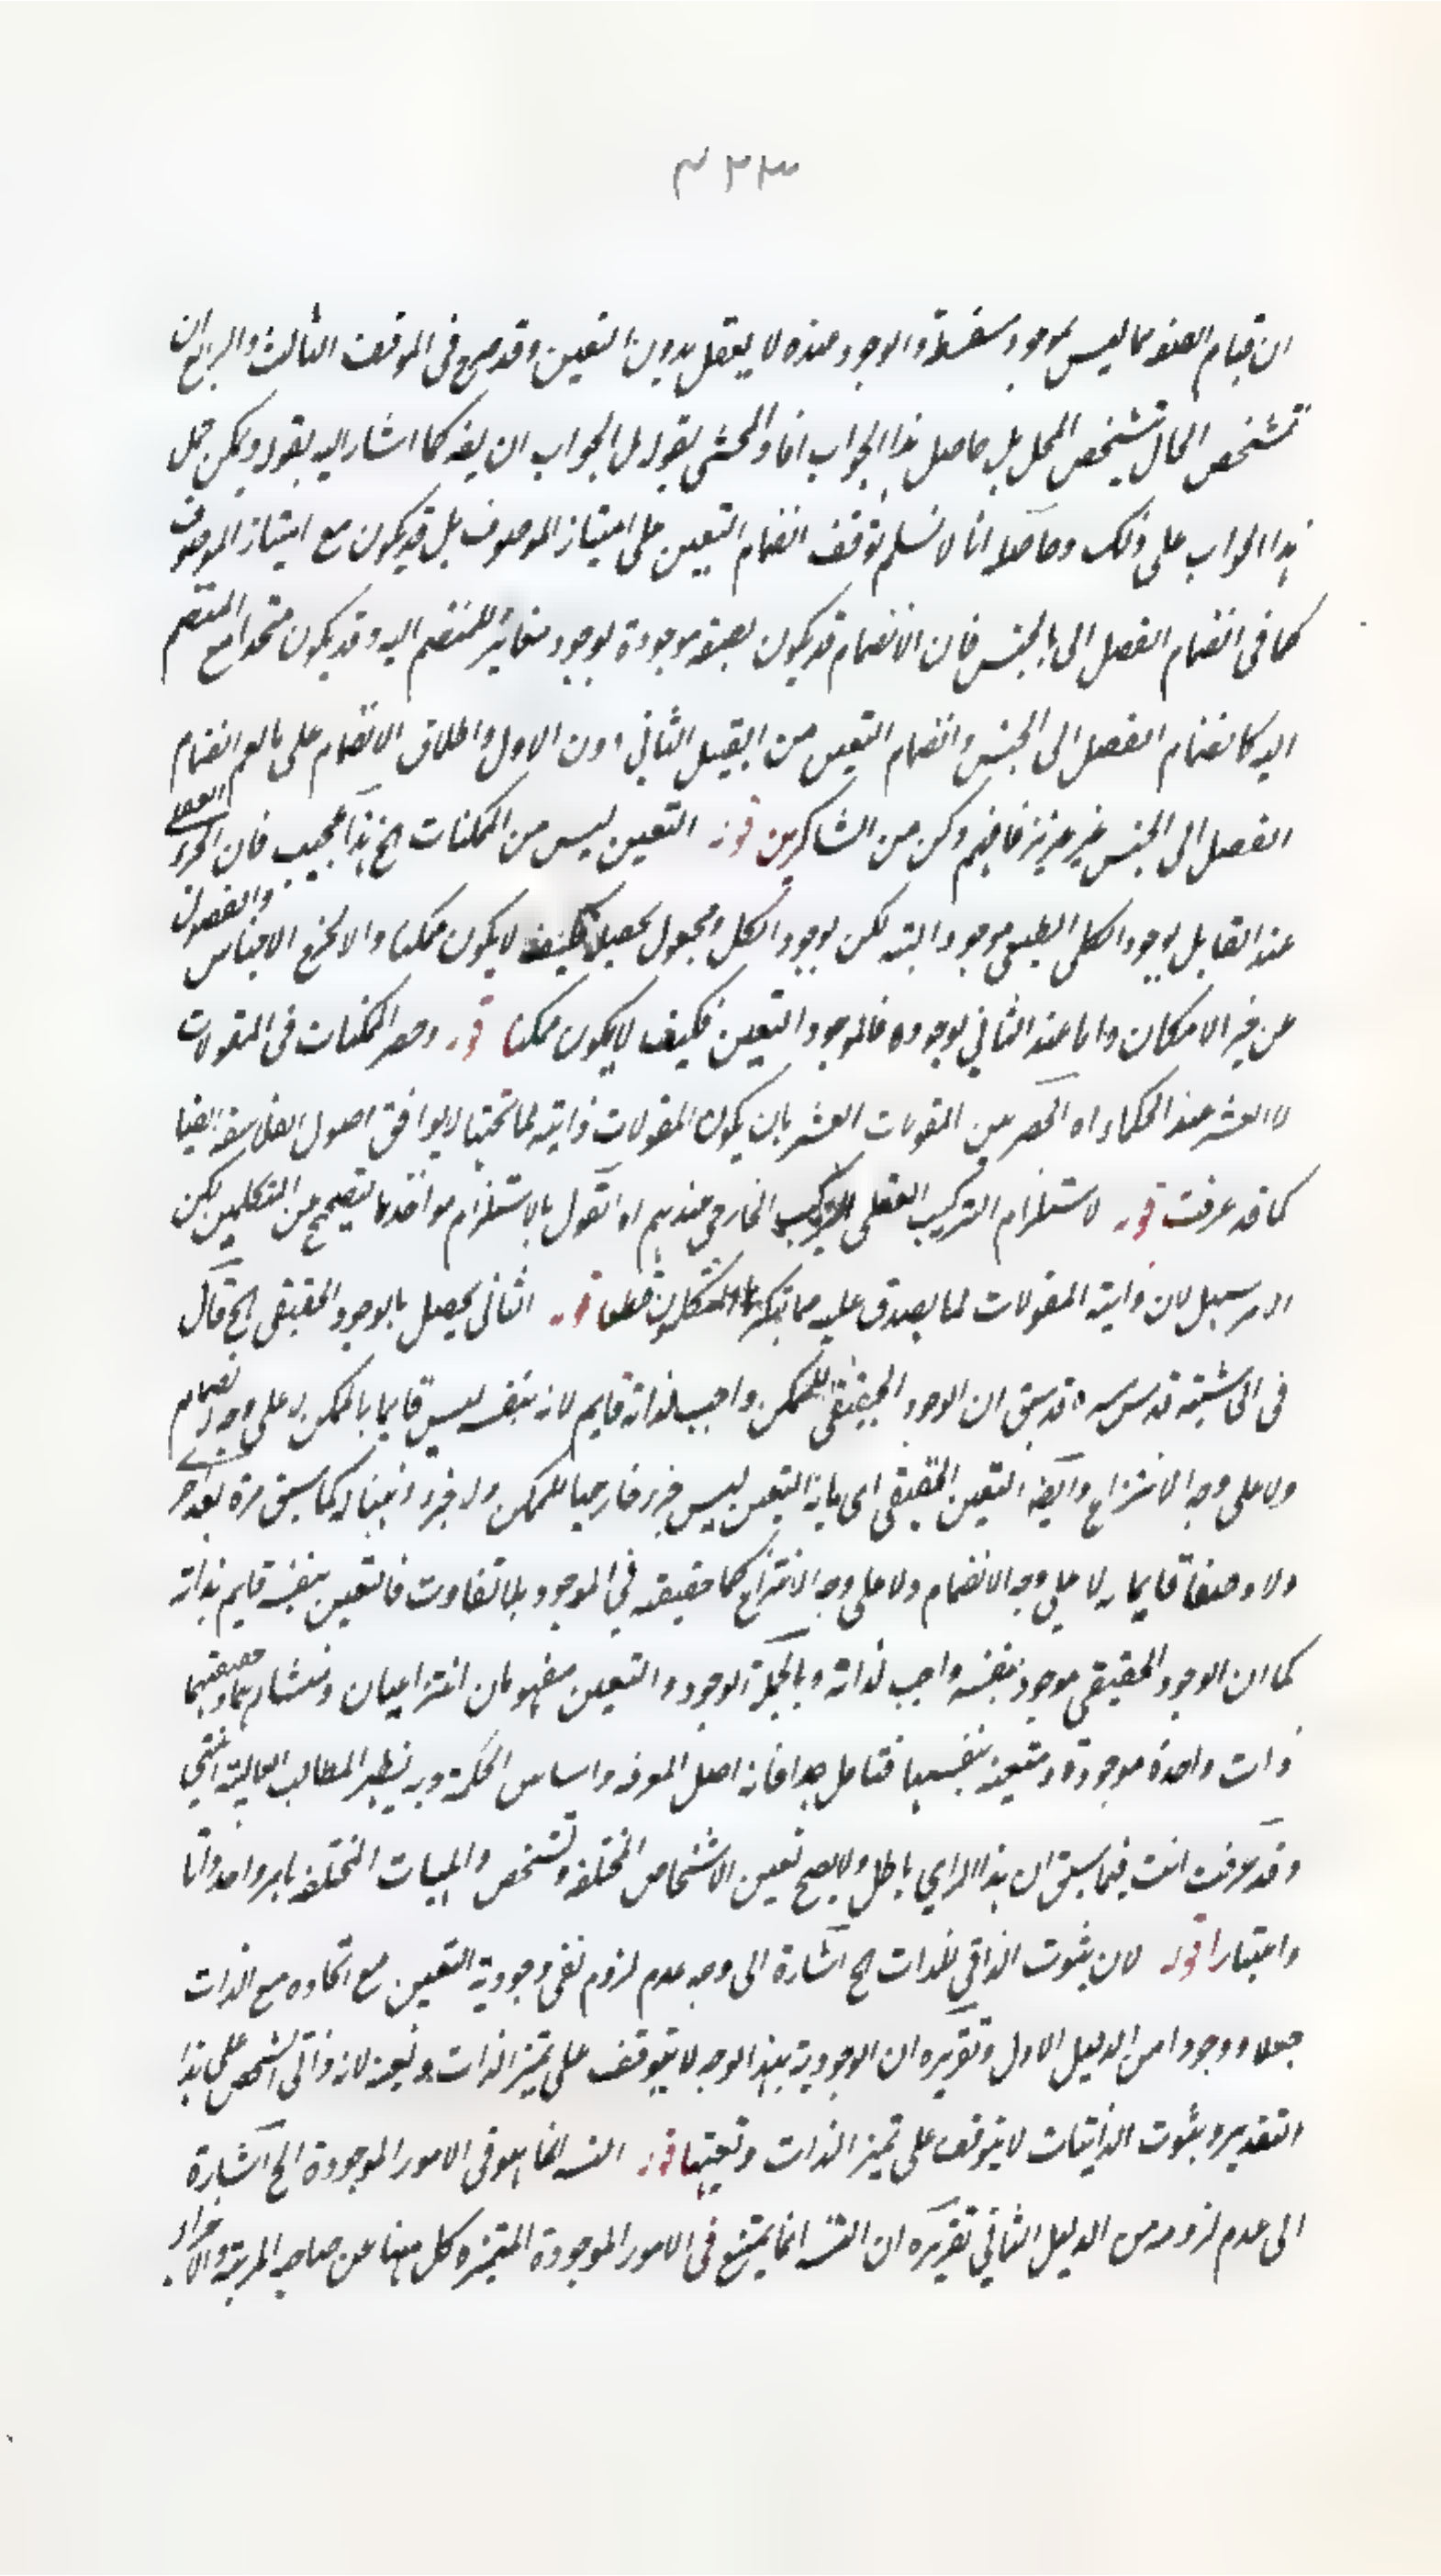 ان قيام الصفة بما ليس بموجود سفسطة والوجود عنده لا يعقل بدون التعين وقد صرح فى الموقف الثالث والرابع ان
تشخص الحال بتشخص المحل بل حاصل هذا الجواب افاد المحشى بقوله الجواب ان يقه كما اشار اليه بقوله ويمكن حمل
هذا الجواب على ذلك وحاصله انا لا نسلم توقف انضمام التعين على امتياز الموصوف بل قد يكون مع امتياز الموصوف
كما فى انضمام الفصل الى بالجنس فان الانضمام قد يكون بصفة موجودة بوجود مغاير للمنضم اليه وقد يكون متحدا مع المنضم
اليه كانضمام الفصل الى الجنس وانضمام التعين من القبيل الثاني دون الاول واطلاق الانضمام على ما يعم انضمام
الفصل الى الجنس غير عزيز فافهم وكن من الشاكرين قوله التعين ليس من الممكنات الخ هذا عجيب فان الجزء العقلى
عند القايل بوجود الكلى الطبيعى موجود البتة لكن بوجود الكل ومجعول بجعله فكيف لا يكون ممكنا والا لخرج الاجناس والفصول
عن حيز الامكان واما عند الثاني لوجوده فالموجود التعين فكيف لا يكون ممكنا قوله وحصر الممكنات فى المقولات
لا العشر عند الحكماء اه الحصر بين المقولات العشر بان يكون المقولات ذاتية لما تحتها لا يوافق اصول الفلاسفة ايضا
كما قد عرفت قوله لاستلزام التركيب العقلى التركيب الخارجى عندهم اه القول بالاستلزام مواخذها يتصحح من المتكلمين لكن
الامر سهل لان ذاتية المقولات لما يصدق عليه مما ينكره المتكلمون قطعا قوله الثانى يحصل بالوجود الحقيقى الخ قال
فى الحاشية قدس سره قد سبق ان الوجود الحقيقى للممكن واجب لذاته قايم لانه بنفسه ليس قايما بالممكن لا على وجه الانضمام
ولا على وجه الانتزاع وايضه التعين الحقيقى اى ما به التعين ليس جزء خارجيا للممكن ولا جزء ذهنيا له كما سبق مرة بعد اخرى
ولا وصفا قايما به لا على وجه الانضمام ولا على وجه الانتزاع كما حقيقته في الموجود بلا تفاوت فالتعين بنفسه قايم بذاته
كما ان الوجود الحقيقى موجود بنفسه واجب لذاته وبالجملة الوجود والتعين مفهومان انتزاعيان ومنشاءهما وحقيقتهما
ذات واحدة موجودة ومتعينة بنفسها فتامل جدا فانه اصل المعرفة واساس الحكمة وبه يظهر المطالب العالية انتهى
وقد عرفت انت فيما سبق ان هذا الراي باطل ولا يصح تعين الاشخاص المختلفة وتشخص والمهيات المختلفة بامر واحد ذاتا
واعتبارا قوله لان ثبوت الذاتي للذات الخ اشارة الى وجه عدم لزوم نفى وجودية التعين مع اتحاده مع الذات
جعلا ووجودا من الدليل الاول وتقريره ان الوجودية بهذا الوجه لا يتوقف على تميز الذات وتعينه لانه ذاتى الشخص على هذا
التقدير وثبوت الذاتيات لا يتوقف على تميز الذات وتعينها قوله التسه انما هو فى الامور الموجودة الخ اشارة
الى عدم لزومه من الدليل الثاني تقريره ان التسه انما يمتنع فى الامور الموجودة المتميزة كل منها عن صاحبه المرتبة والاجزاء